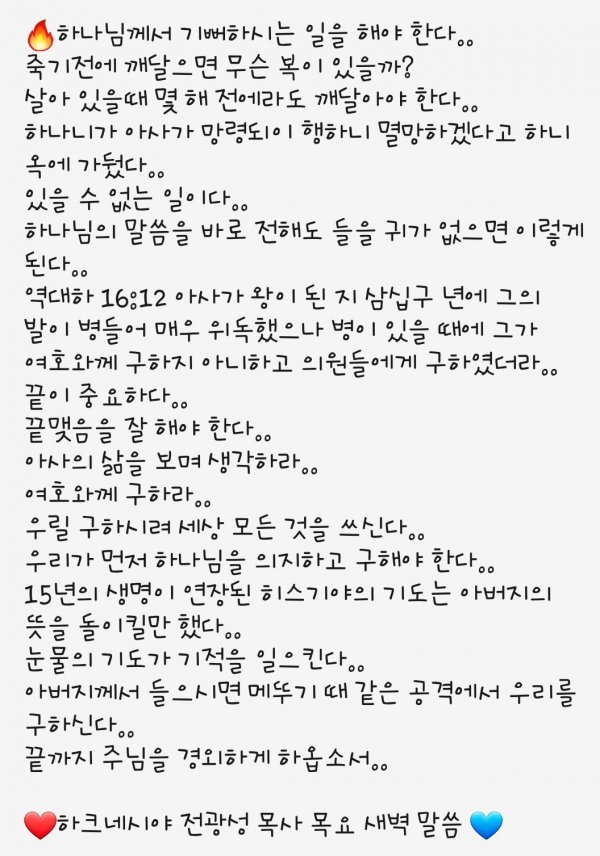 🔥하나님께서 기뻐하시는 일을 해야 한다..
죽기전에 깨달으면 무슨 복이 있을까?
살아 있을때 몇 해 전에라도 깨달아야 한다..
하나니가 아사가 망령되이 행하니 멸망하겠다고 하니
옥에 가뒀다..
있을 수 없는 일이다..
하나님의 말씀을 바로 전해도 들을 귀가 없으면 이렇게
된다..
역대하 16:12 아사가 왕이 된 지 삼십구 년에 그의
발이 병들어 매우 위독했으나 병이 있을 때에 그가
여호와께 구하지 아니하고 의원들에게 구하였더라..
끝이 중요하다..
끝맺음을 잘 해야 한다..
아사의 삶을 보며 생각하라..
여호와께 구하라..
우릴 구하시려 세상 모든 것을 쓰신다..
우리가 먼저 하나님을 의지하고 구해야 한다..
15년의 생명이 연장된 히스기야의 기도는 아버지의
뜻을 돌이킬만 했다..
눈물의 기도가 기적을 일으킨다..
아버지께서 들으시면 메뚜기 때 같은 공격에서 우리를
구하신다..
끝까지 주님을 경외하게 하옵소서..
❤️하크네시야 전광성 목사 목요 새벽 말씀 💙